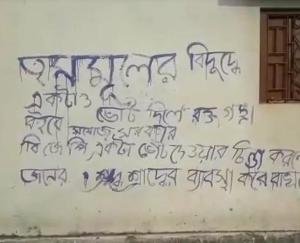 তৃনমূলের বিরুদ্ধে
একটাও
ভোট দিলে রক্ত গঙ্গা
বইবে
বি জে পি একটা ভোট দেওয়ার চিন্তা করলে
শ্রাদ্ধের ব্যবস্থা করে রাখা